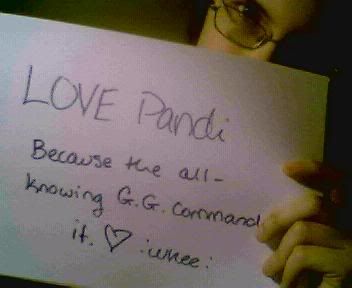 LOVE Pandi
Because the all-
knowing G.G. command
it. ♡ :whee: